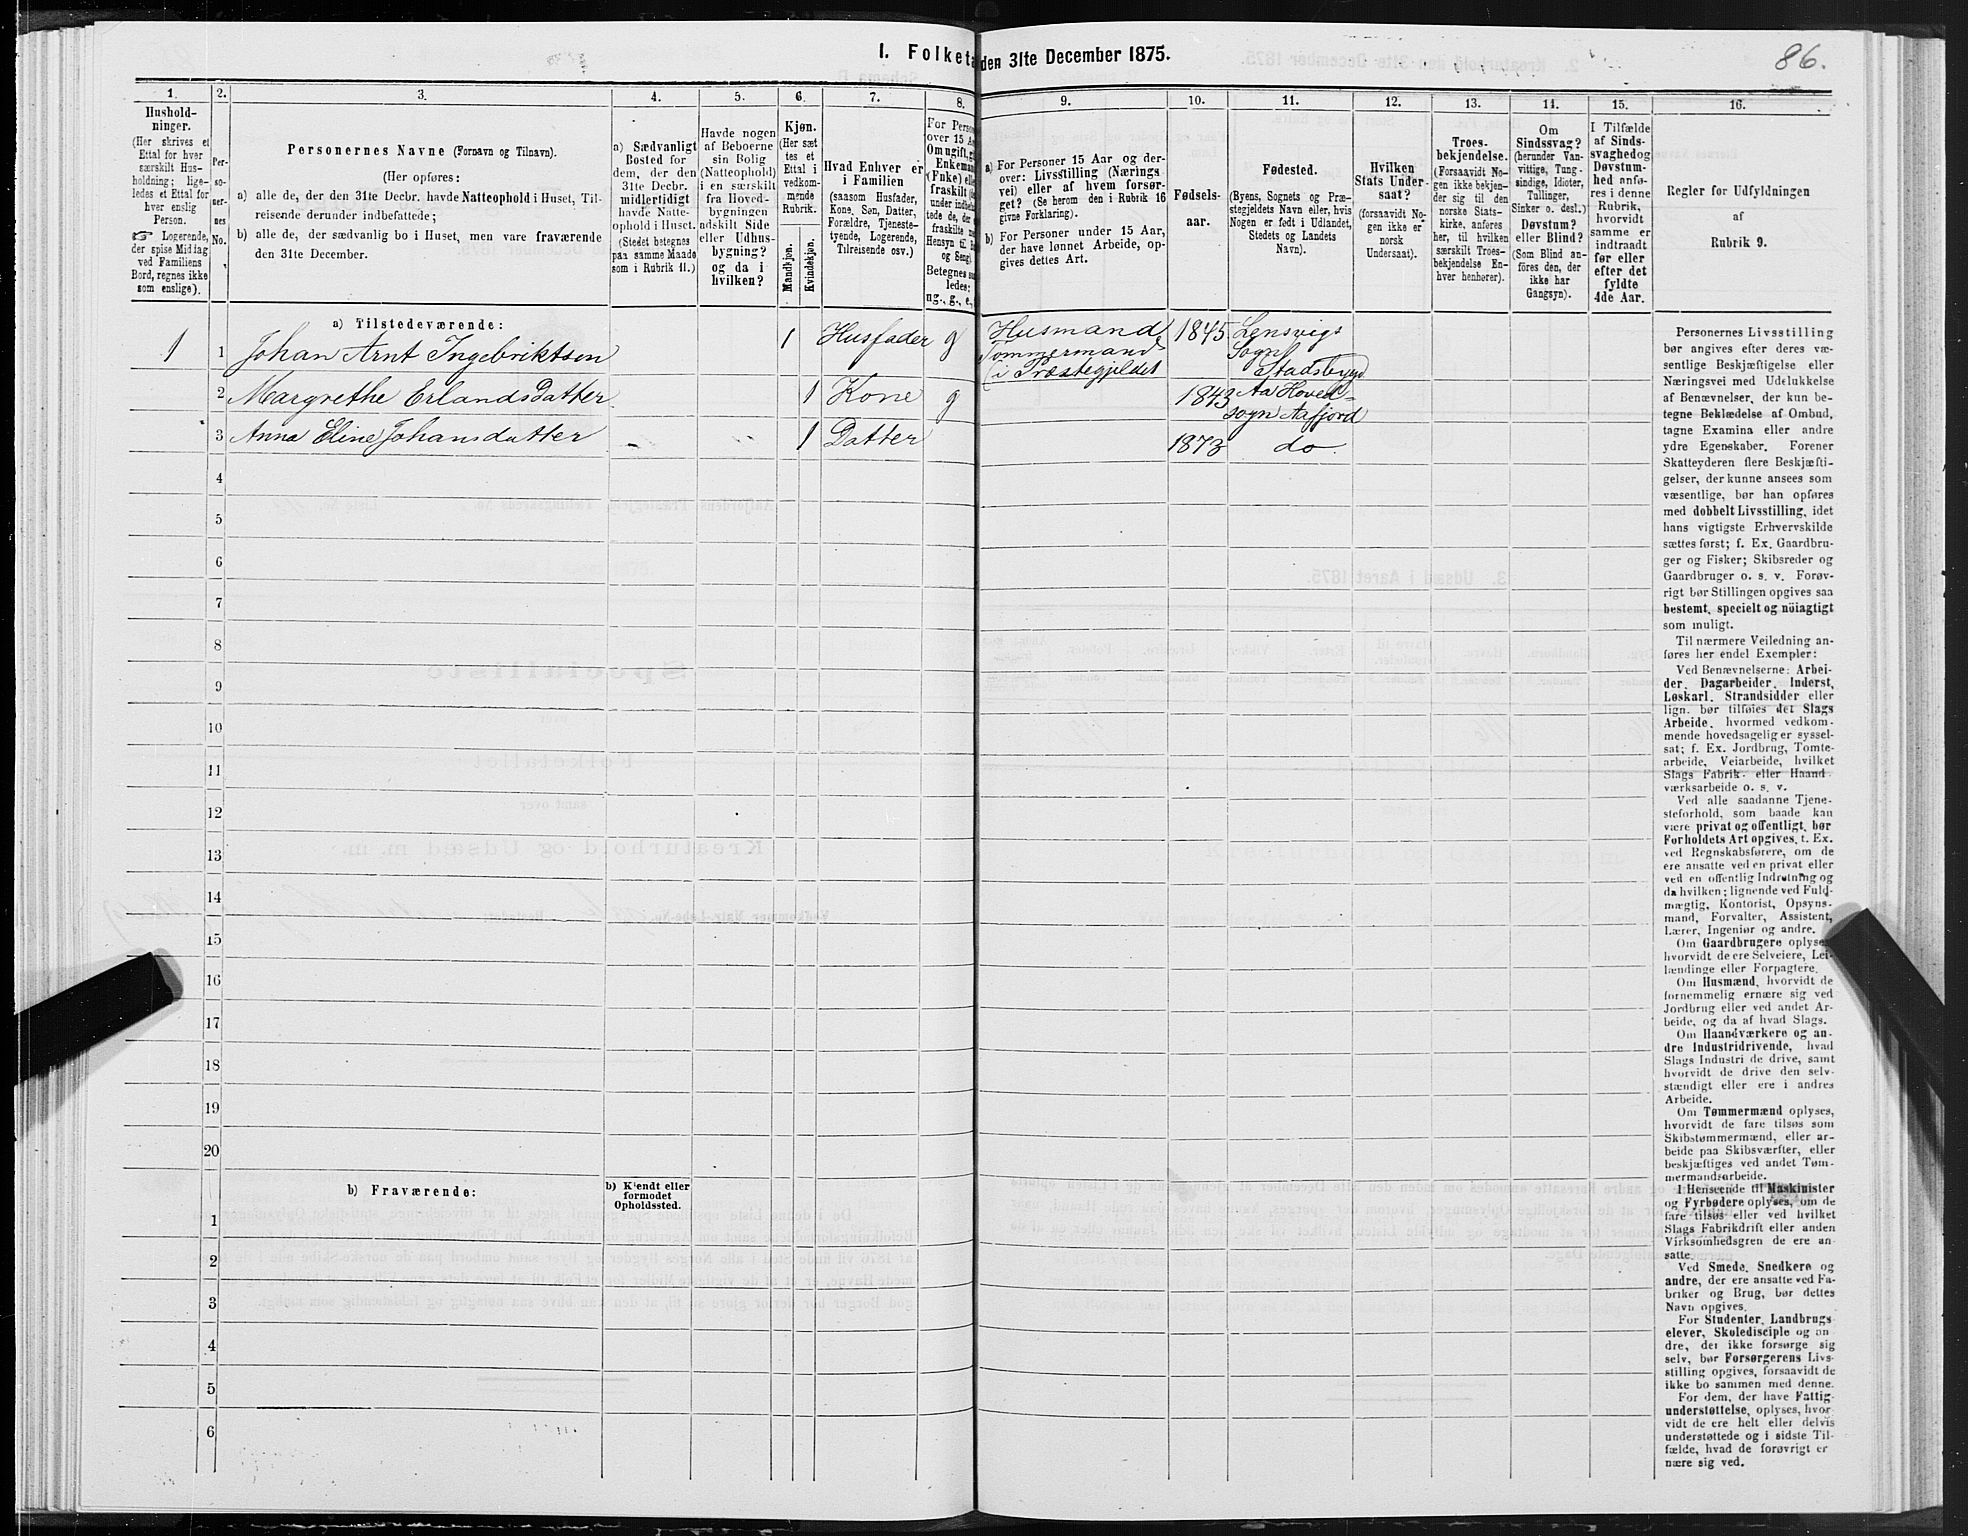 1. Folketa den 31te December 1875.
86.
1.
Hushold-
ninger.
(Her skrives et
Ettal for hver
særskilt Hus-
holdning; lige-
ledes et Ettal for
hver enslig
Person.
☞ Logerende,
der spise Middag
ved Familiens
Bord, regnes ikke
som enslige).
2.
Per-
so-
ner-
nes
No.
3.
Personernes Navne (Fornavn og Tilnavn).
(Her opføres:
a) alle de, der den 31te Decbr. havde Natteophold i Huset, Til-
reisende derunder indbefattede;
b) alle de, der sædvanlig bo i Huset, men vare fraværende
den 31te December.
4.
a) Sædvanligt
Bosted for
dem, der den
31te Decbr.
midlertidigt
havde Natte-
ophold i Huset.
(Stedet betegnes
paa samme Maade
som i Rubrik 11.)
5.
Havde nogen
af Beboerne
sin Bolig
(Natteophold)
i en særskilt
fra Hoved-
bygningen
adskilt Side
eller Udhus-
bygning?
og da i
hvilken?
6.
Kjøn.
(Her sæt
tes et
Ettal i
vedkom-
mende
Rubrik.
Mandkjøn.
Kvindekjøn.
7.
Hvad Enhver er
i Familien
(saasom Husfader,
Kone, Søn, Datter,
Forældre, Tjeneste-
tyende, Logerende,
Tilreisende osv.)
8.
For Perso
over 15 Aa
Om ugift, gi
Enkeman
(Enke) elle
fraskilt (de
under indbe
tede de, der
fraskilte m
Hensyn til B
og Seng).
Betegnes sa
ledes:
ug., g., e.,
9.
a) For Personer 15 Aar og der-
over: Livsstilling (Nærings
vei) eller af hvem forsør-
get? (Se herom den i Rubrik 16
givne Forklaring).
b) For Personer under 15 Aar,
der have lønnet Arbeide, op-
gives dettes Art.
10.
Fødsels-
aar.
11.
Fødested.
(Byens, Sognets og Præ-
stegjeldets Navn eller, hvis
Nogen er født i Udlandet,
Stedets og Landets
Navn).
12.
Hvilken
Stats Under-
saat?
(forsaavidt No-
gen ikke er
norsk
Undersaat).
13.
Troes-
bekjendelse.
(Forsaavidt No-
gen ikke bekjen-
der sig til den
norske Stats-
kirke, anføres
her, til hvilken
særskilt Troes-
bekjendelse En-
hver henhører).
14.
Om
Sindssvag?
(herunder Van-
vittige, Tung-
sindige, Idioter,
Tullinger,
Sinker o. desl.)
Døvstum?
eller Blind?
(Som Blind an-
føres den, der
ikke har
Gangsyn).
15.
I Tilfælde
af Sinds-
svaghed og
Døvstum-
hed anfø-
res i denne
Rubrik,
hvorvidt
samme er
indtraadt
før eller
efter det
fyldte
4de Aar.
16.
Regler før Udfyldningen
af
Rubrik 9.
a) Tilstedeværende:
1 1 Johan Arnt Ingebriktsen 1 Husfader g Husmand Tømmermand i Præstegjeldet 1845 Lensvigs Sogn Stadsbygd
2 Margrethe ErlandsDatter 1 Kone g 1843 Aa Hoved-sogn Aafjord
3 Anna Eline Johansdatter 1 Datter 1873 do
4
5
6
7
8
9
10
11
12
13
14
15
16
17
18
19
20
b) Fraværende:
b) Kjendt eller
formodet
Opholdssted.
1
2
3
4
5
6
Personernes Livsstilling
bør angives efter deres væ-
sentlige Beskjæftigelse eller
Næringsvei med Udelukkelse
af Benævnelser, der kun be-
tegne Beklædelse af Ombud,
tagne Examina eller andre
ydre Egenskaber. Forener
Skatteyderen flere Beskjæfti-
gelser, der kunne ansees som
væsentlige, bør han opføres
med dobbelt Livsstilling, idet
hans vigtigste Erhvervskilde
sættes først; f. Ex. Gaardbru-
ger og Fisker; Skibsreder og
Gaardbruger o. s. v. Forøv-
rigt bør Stillingen opgives saa
bestemt, specielt og nöiagtigt
som muligt.
Til nærmere Veiledning an-
føres her endel Exempler:
Ved Benævnelserne: Arbei-
der, Dagarbeider, Inderst,
Løskarl, Strandsidder eller
lign. bør tilføies det Slags
Arbeide, hvormed vedkom-
mende hovedsagelig er syssel-
sat; f. Ex. Jordbrug, Tomte-
arbeide, Veiarbeide, hvilket
Slags Fabrik- eller Haand-
værksarbeide o. s. v.
Ved alle saadanne Tjene-
steforhold, som baade kan
være privat og offentligt, bør
Forholdets Art opgives, t. Ex.
ved Regnskabsførere, om de
ere ansatte ved en privat eller
ved en offentlig Indretning og
da hvilken; lignende ved Fuld-
mægtig, Kontorist, Opsyns-
mand, Forvalter, Assistent,
Lærer, Ingeniør og andre.
Om Gaardbrugere oplyses,
hvorvidt de ere Selveiere, Lei-
lændinge eller Forpagtere.
Om Husmænd, hvorvidt de
fornemmelig ernære sig ved
Jordbrug eller ved andet Ar-
beide, og da af hvad Slags.
Om Haandværkere og an-
dre Industridrivende, hvad
Slags Industri de drive, samt
hvorvidt de drive den selv-
stændigt eller ere i andres
Arbeide.
Om Tømmermænd oplyses,
hvorvidt de fare tilsøs som
Skibstømmermænd, eller ar-
beide paa Skibsværfter, eller
beskjæftiges ved andet Tøm-
mermandsarbeide.
I Henseende til Maskinister
og Fyrbødere oplyses, om de
fare tilsøs eller ved hvilket
Slags Fabrikdrift eller anden
Virksomhedsgren de ere an-
satte.
Ved Smede, Snedkere og
andre, der ere ansatte ved Fa-
briker og Brug, bør dettes
Navn opgives.
For Studenter, Landbrugs-
elever, Skoledisciple og an-
dre, der ikke forsørge sig
selv, bør Forsørgerens Livs-
stilling opgives, forsaavidt de
ikke bo sammen med denne.
For dem, der have Fattig-
understøttelse, oplyses, hvor-
vidt de ere helt eller delvis
understøttede og i sidste Til-
fælde, hvad de forøvrigt er-
nære sig ved.